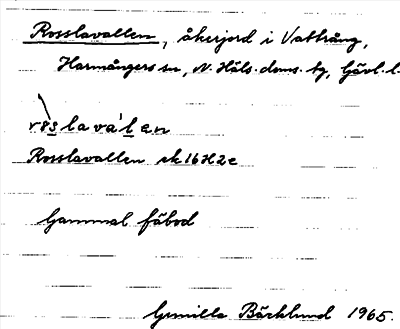 Rosslavallen, åkerjord i Vattrång,
Harmångers sn, N. Häls. doms. tg, Gävl. l.
r8slavál en
Rosslavallen ek 16H2e
Gammal fäbod
Gunilla Bäcklund 1965.